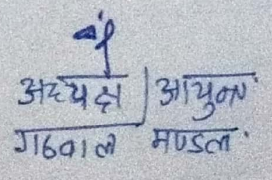 अध्यक्ष / आयुक्त
गढवाल मण्डल.